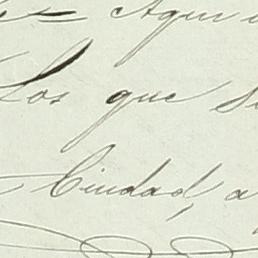 Aqui
Los que
Ciudad, a